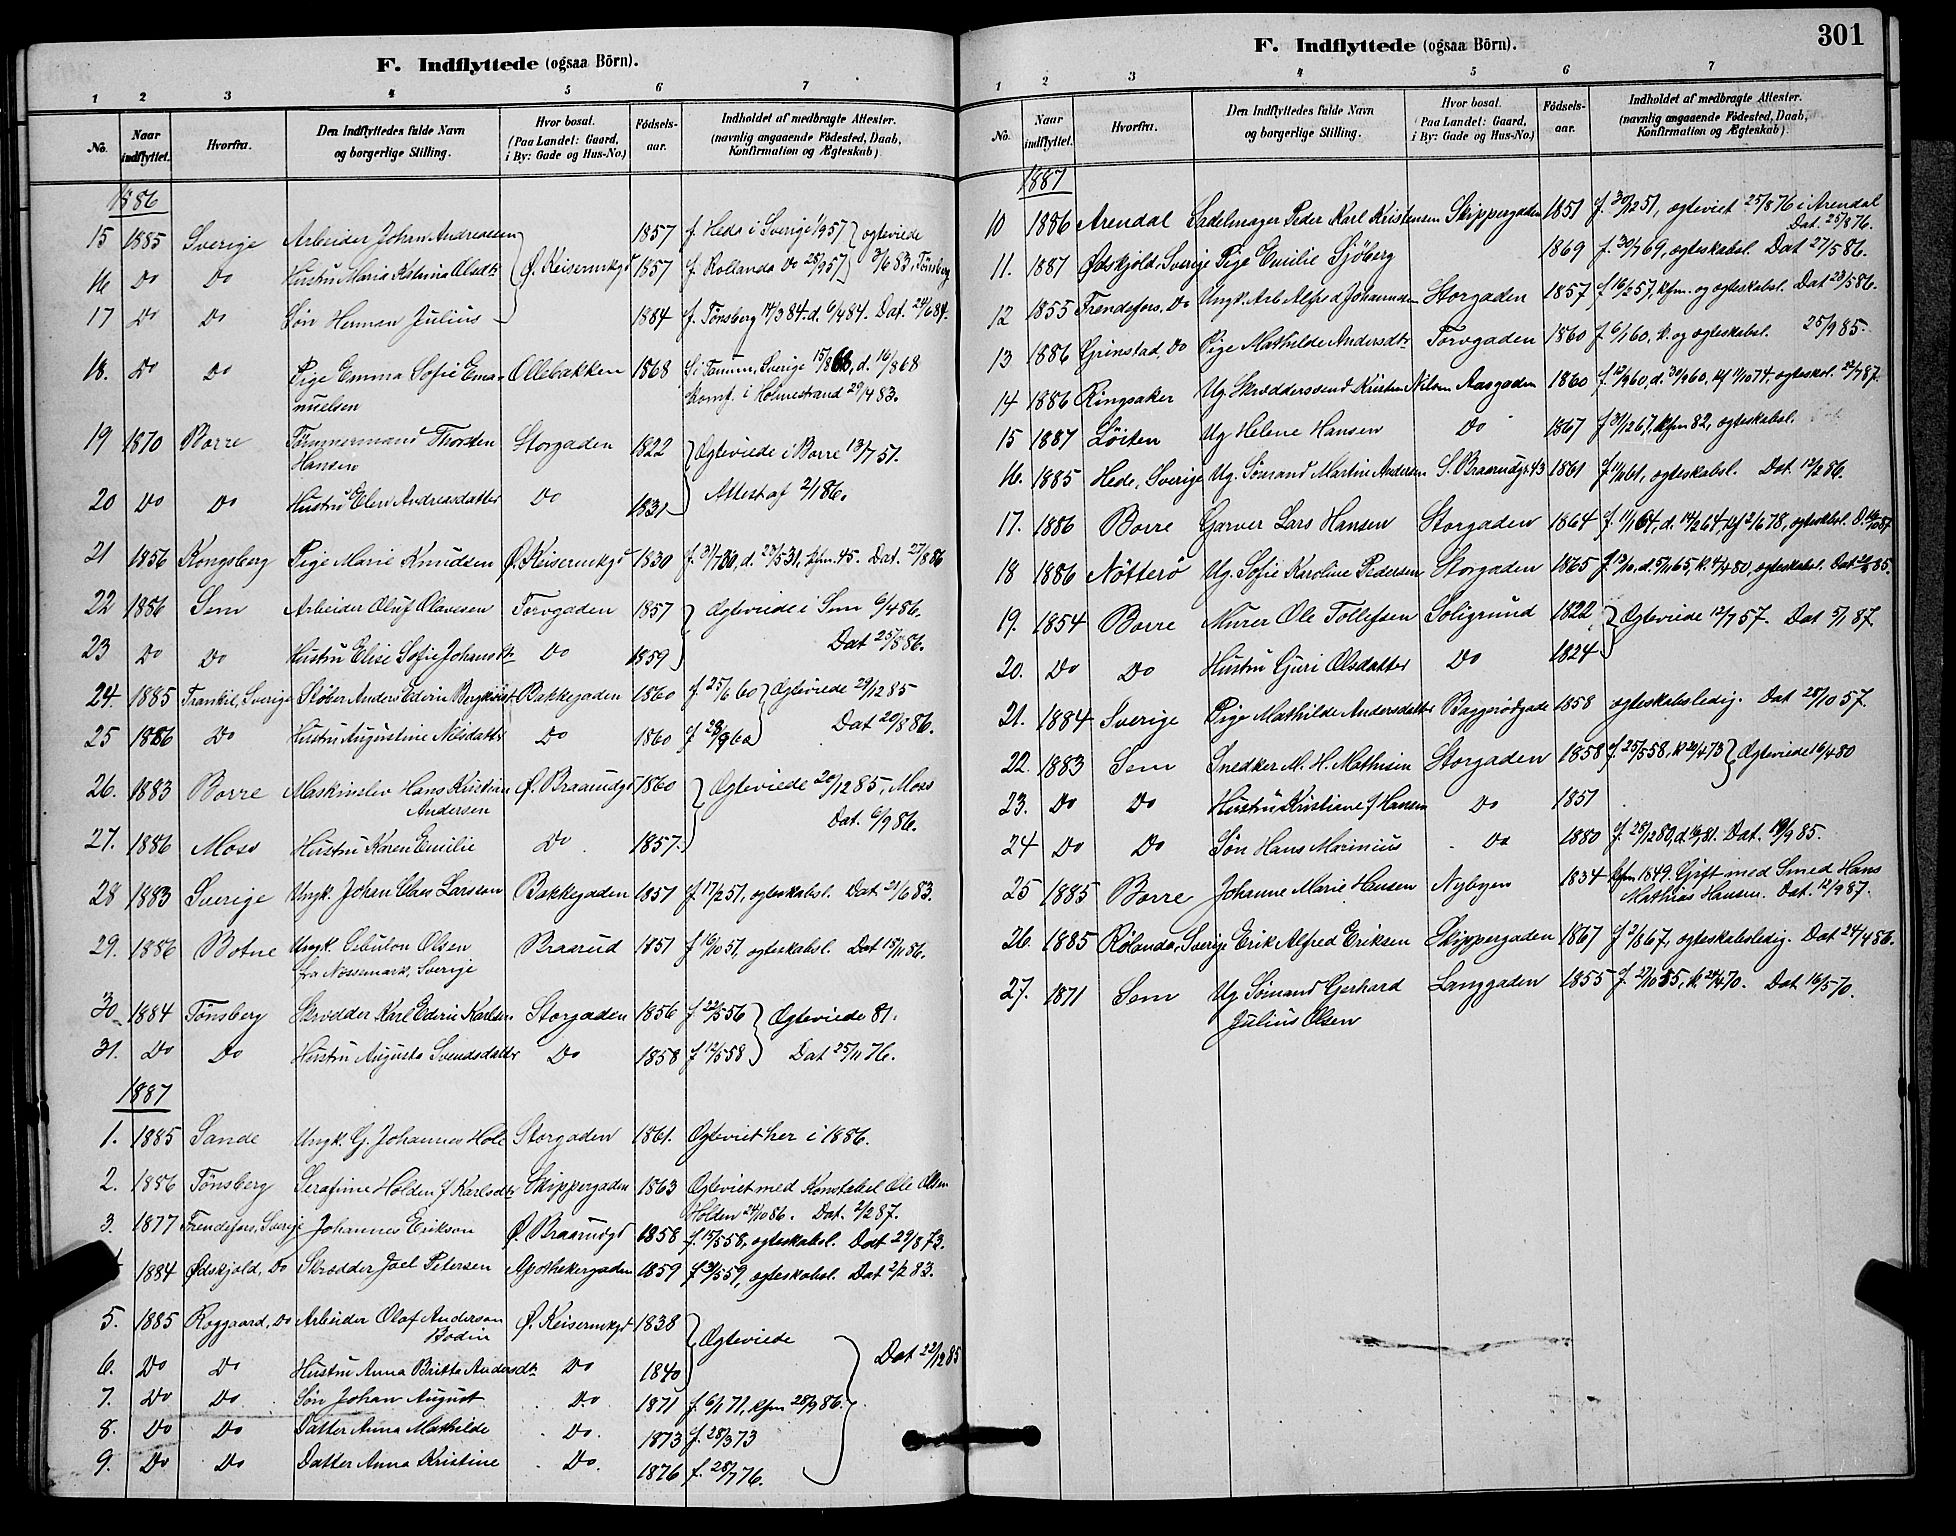 F. Indflyttede (ogsaa Börn).
1 2 3 4 5 6 7
No. Naar indflyttet. Hvorfra. Den Indflyttedes fulde Navn og borgerlige Stilling. Hvor bosat. (Paa Landet: Gaard, i By: Gade og Hus-No.) Fødsels-aar. Indholdet af medbragte Attester. (navnlig angaaende Födested, Daab, Konfirmation og Ægteskab)
1886
15 1885 Sverige Arbeider Johan Andreassen Ø. Keisermkgd 1857 f. Heda i Sverige 1/9 57 ogteviede
16 Do Do Hustru Maria Katarina Olsdtr 1857 f. Rollanda Do 28/9 57 3/6 83 i Tönsberg
17 Do Do Søn Herman Julius 1884 f. Tönsberg 14/3 84. d. 6/4 84. Dat. 24/6 84.
18. Do Do Pige Emma Sofie Ema- Ollebakken 1868 i Tanum, Sverige 15/8 68, d. 16/8 68
nuelsen Komf. i Holmestrand 29/4 83.
19 1870 Borre Tömmermand Thorsten Storgaden 1822 Ogteviede i Borre 13/7 51.
Hansen
20 Do Do Hustru Elen Andreasdatter Do 1831 Attest af 2/1 86.
21 1856 Kongsberg Pige Marie Knudsen Ø. Keisermkgd 1830 f. 31/7 30, d. 23/5 31, kfm. 45. Dat. 27/8 86
22 1886 Sem Arbeider Oluf Olavesen Torvgaden 1857 Ogteviede i Sem 6/4 86.
23 Do Do Hustru Elise Sofie Johansdtr Do 1859 Dat 25/8 86.
24. 1885 Frankil, Sverige Støber Anders Edvin Bergkvist Bakkegaden 1860 f. 25/6 60 Ogteviede 29/12 85
25 1886 Do Hustru Augustine Nilsdatter Do 1860 f 28/9 60 Dat 20/8 86.
26. 1883 Borre Maskinslev Hans Kristian Ø. Braarudgd 1860 Ogteviede 20/12 85, Moss
Andersen Dat. 6/9 86.
27. 1886 Moss Hustru Karen Emilie Do 1857.
28 1883 Sverige Ungk. Johan Claes Larsson Bakkegaden 1851 f. 17/2 51, ogteskabsl. Dat 21/6 83.
29. 1886 Botne Ungk. Cebulon Olsen Braarud 1851 f 16/10 51, ogteskabsl. Dat 15/11 86.
fra Nössemark, Sverige
30 1884 Tönsberg Skrædder Karl Edvin Karlsen Storgaden 1856 f 22/5 56 Ogteviede 81.
31. Do Do Hustru Augusta Svendsdatter Do 1858 f 12/5 58 Dat 25/11 76.
1887
1. 1885 Sande Ungk. G. Johannes Hole Storgaden 1861. Ogteviet her i 1886.
2. 1886 Tönsberg Serafine Holden f Karlsdtr Skippergaden 1863 Ogteviet med Konstabel Ole Olsen
Holden 24/10 86. Dat. 2/2 87.
3. 1877 Frendefors, Sverige Johannes Erikson Ø. Braarudgd 1858 f. 15/5 58, ogteskabsl. Dat 29/8 73.
1884 Ødskjold, Do Skrædder Joel Petersen Apothekergaden 1859 f 31/5 59, ogteskabsl. Dat 2/2 83.
5. 1885 Roggaard, Do Arbeider Olaf Anderson Ø. Keisermkgd 1838 Ogteviede
Bodin
6. Do Do Hustru Anna Britta Andersdtr Do 1840 Dat 22/12 85
7. Do Do Søn Johan August Do 1871 f. 6/1 71, kfm 28/9 86.
8. Do Do Datter Anna Mathilde Do. 1873 f. 28/3 73
9. Do Do Datter Anna Kristine Do. 1876 f. 28/7 76.
F. Indflyttede (ogsaa Börn).
301
1 2 3 4 5 6 7
No. Naar indflyttet. Hvorfra. Den Indflyttedes fulde Navn og borgerlige Stilling. Hvor bosat. (Paa Landet: Gaard, i By: Gade og Hus-No.) Födsels-aar. Indholdet af medbragte Attester. (navnlig angaaende Födested, Daab, Konfirmation og Ægteskab)
1887
10 1886 Arendal Sadelmager Peder Karl Kristensen Skippergaden 1851 f. 30/12 51, ogteviet 25/8 76 i Arendal
Dat. 25/8 76.
11. 1887 Ødskjold, Sverige Pige Emilie Sjöberg 1869 f. 30/7 69, ogteskabsl. Dat 27/5 86.
12 1855 Frendefors, Do Ungk. Arb Alfred Johannesen Storgaden 1857 f 16/2 57, kfm. og ogteskabsl. Dat 23/5 86.
13 1886 Grinstad, Do Pige Mathilde Andersdtr Torvgaden 1860 f 6/1 60, k. og ogteskabsl. 25/9 85.
14 1886 Ringsaker Ug. Skræddersvend Kristen Nilsen Aasgaden 1860 f. 12/9 60, d. 30/9 60, kf 11/10 74, ogteskbl. 22/7 87.
15 1887 Löiten Ug Helene Hansen Do 1867 f 31/12 67, kfm 82, ogteskabsl.
16. 1885 Hede, Sverige Ug. Sömand Martin Andersen S. Braarudgd 43 1861 ogteskabsl. Dat. 12/2 86.
17. 1886 Borre Garver Lars Hansen Storgaden 1864 f. 11/1 64, d. 14/2 64, kf 2/6 78, ogteskabsl.
18 1886 Nötterö Ug. Sofie Karoline Pedersen Storgaden 1865 ogteskabsl.
19. 1854 Borre Murer Ole Tollefsen Soligrund 1822 Ogteviede 12/7 57. Dat 5/1 87.
20. Do Do Hustru Guri Olsdatter Do 1824
21. 1884 Sverige Pige Mathilde Andersdatter Baggerödgade 1858 ogteskabsledig. Dat 28/10 57.
22. 1883 Sem Snedker M. H. Mathisen Storgaden 1858 f. 25/5 58, k 20/4 73 Ogteviede 16/4 80
23. Do Do Hustru Kristiane f Hansen Do 1851
24 Do Do Søn Hans Marinius Do 1880 f. 28/12 80, Dat. 19/9 85.
25 1885 Borre Johanne Marie Hansen Nybyen 1834 kfm 1849. Gift med Smed Hans
Mathias Hansen. Dat. 12/9 87.
26. 1885 Rölanda, Sverige Erik Alfred Eriksen Skippergaden 1867 f 2/8 67, ogteskabsledig. Dat 24/4 86.
27. 1871 Sem Ug Sömand Gerhard Langgaden 1855 f. 27/10 55, k. 24/4 70. Dat 16/5 70.
Julius Olsen